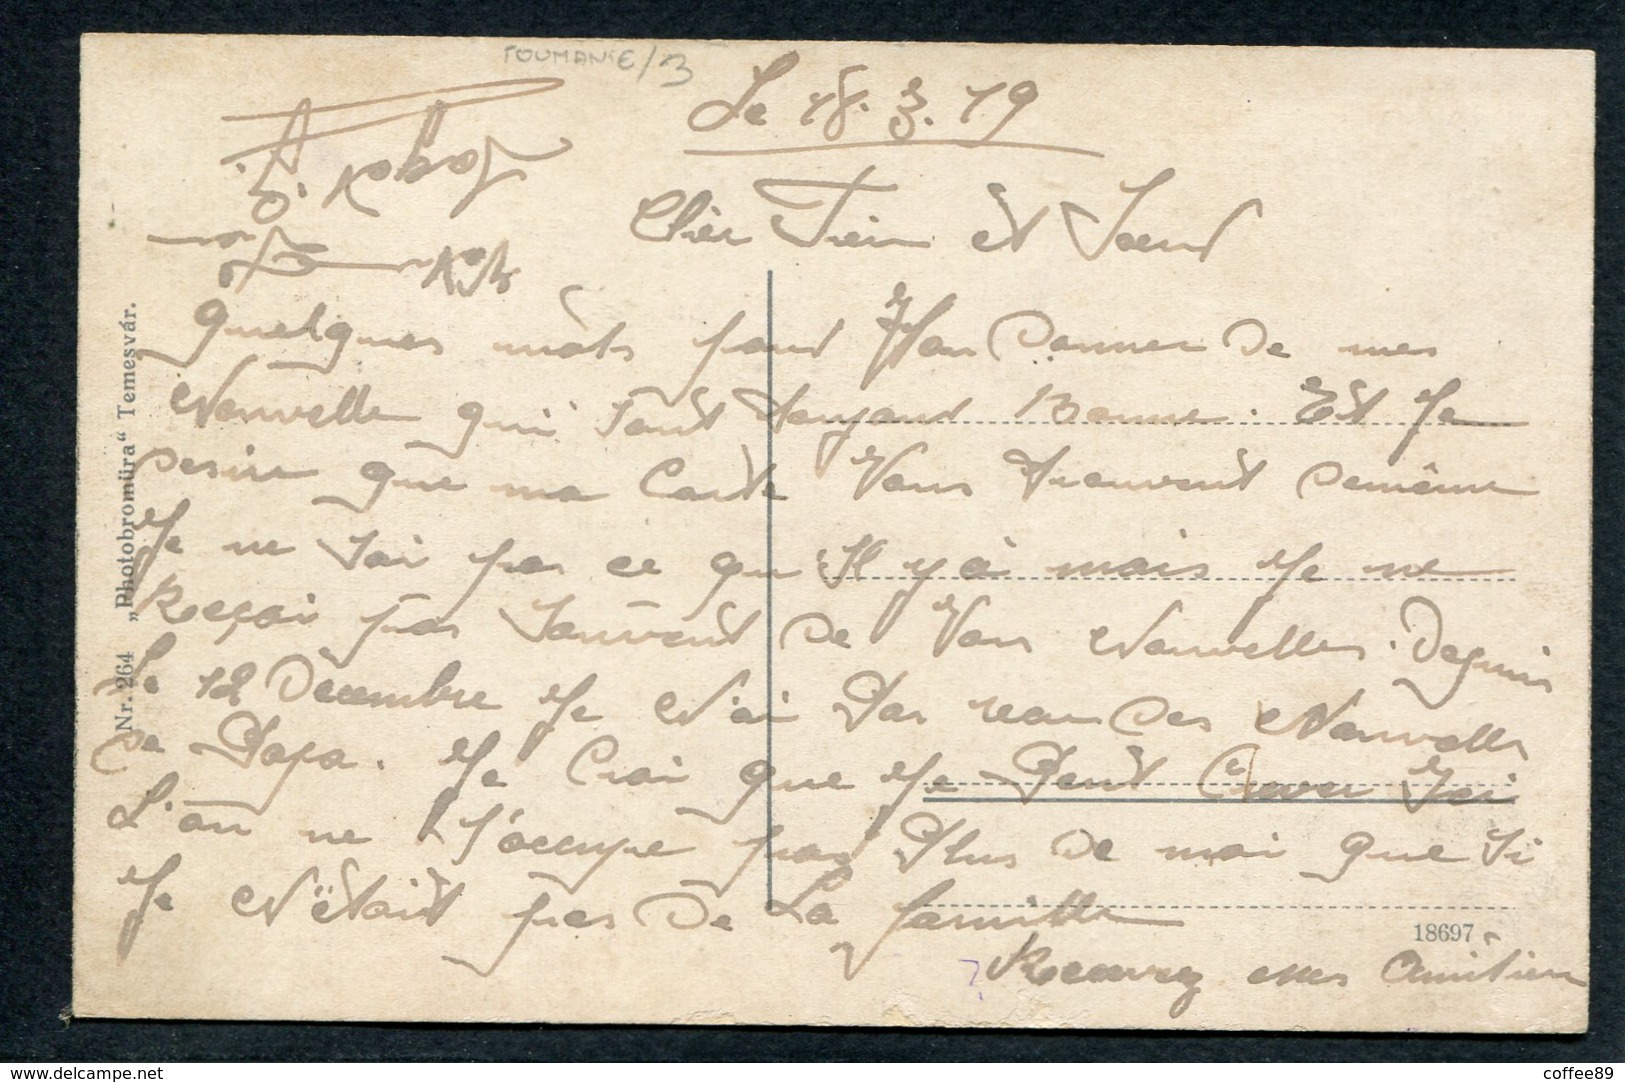 ROUMANIE/3
Le 18. 3. 19
Cher Frèr et Soeur
Quelques môts pour Vou Donner De mes
Nouvelle qui sont toujour Bonne. Et Je
Desire que ma Carte Vous trouvent Demême
Je ne sai pas ce que Il y à mais Je ne
Reçoi pas Souvent De Vos Nouvelles. Depuis
Le 18 Décembre Je N'ai Pas reçu Des Nouvelles
De Papa. Je Croi que Je Peut Crever Ici
L'on ne s'occupe pas Plus De moi que si
Je N'était pas De La famille
Recevez mes Amitier
Nr. 264 „Photobromüra“ Temesvár.
18697
www.delcampe.net
coffee89